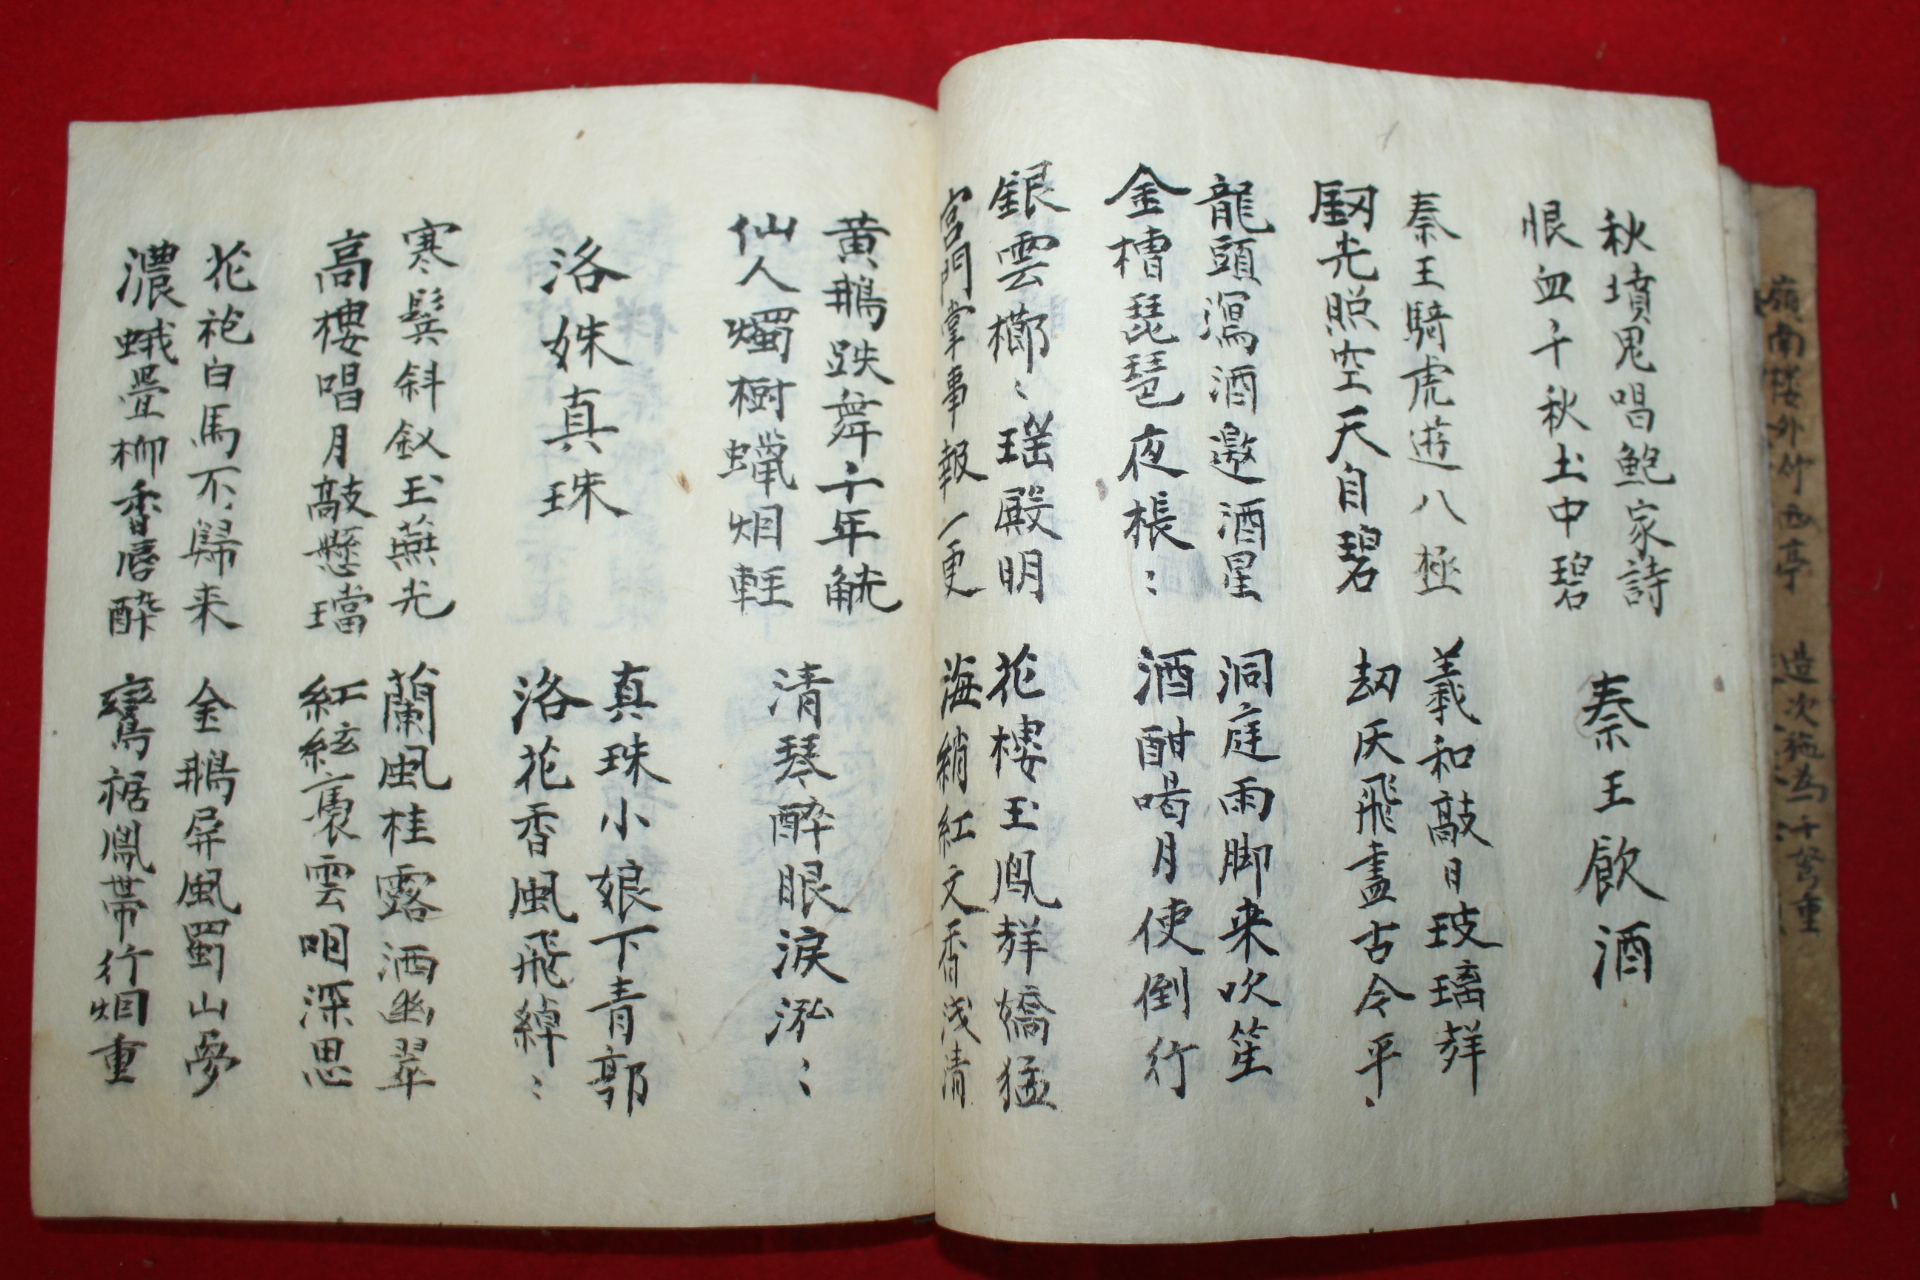 秋墳鬼唱鮑家詩
恨血千秋土中碧
秦王飮酒
秦王騎虎遊八極
釼光照空天自碧
羲和敲日玻璃聲
劫灰飛盡古今平
龍頭瀉酒邀酒星
金槽琵琶夜棖〻
洞庭雨脚来吹笙
酒酣喝月使倒行
銀雲櫛〻瑶殿明
宮門掌事報一更
花樓玉鳳聲嬌獰
海綃紅文香浅清
黄鵝跌舞千年觥
仙人燭樹蠟烟輕
清琴醉眼淚泓〻
洛姝真珠
真珠小娘下青郭
洛花香風飛綽〻
寒鬂斜釵玉燕光
高樓唱月敲懸璫
蘭風桂露洒幽翠
紅絃裊雲咽深思
花袍白馬不歸来
濃蛾疊柳香唇醉
金鵝屏風蜀山夢
鸞裾鳳帯行烟重
嶺南楼外竹西亭
造次施為千弩重